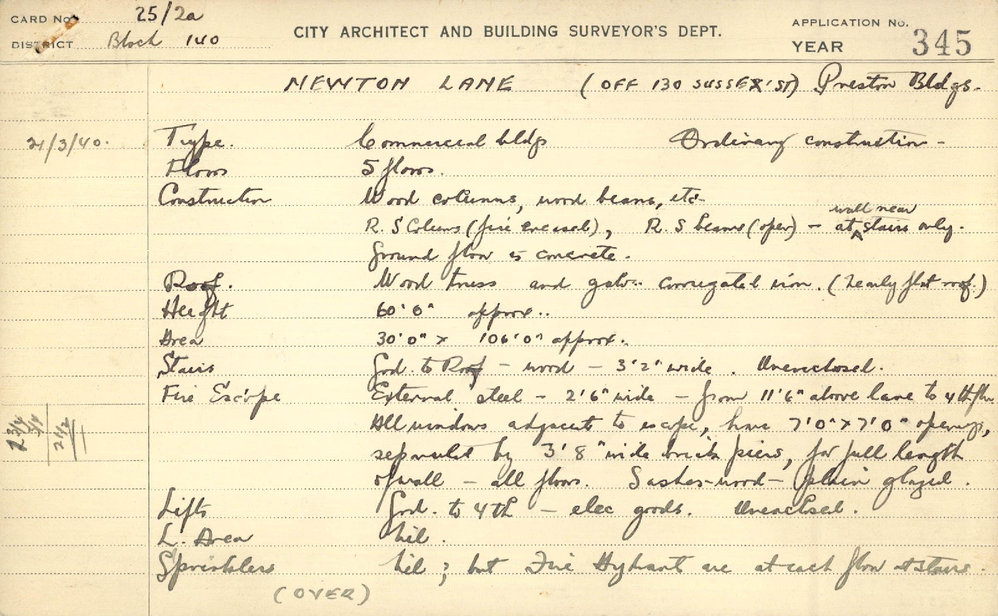 CARD No. 25/2a
DISTRICT Block 140
CITY ARCHITECT AND BUILDING SURVEYOR'S DEPT.
APPLICATION No.
YEAR 345
NEWTON LANE (OFF 130 SUSSEX ST) Preston Bldgs.
21/3/40. Type. Commercial bldgs Ordinary construction -
Floors 5 floors.
Construction Wood columns, wood beams, etc-
R.S Colums (fire encased), R.S beams (open) - at wall near stairs only.
Ground floor is concrete.
Roof. Wood truss and galv. corrugated iron. (Nearly flat roof.)
Height 60'0" approx..
Area 30'0" x 106'0" approx.
Stairs Grd. to Roof - wood - 3'2" wide. Unenclosed.
Fire Escape External steel - 2'6" wide - from 11'6" above lane to 4th flr
All windows adjacent to escape, have 7'0" x 7'0" openings,
separated by 3'8" wide brick piers, for full length
of wall - all floors. Sashes-wood- plain glazed.
Lifts Grd. to 4th - elec goods. Unenclosed.
L. Area Nil.
Sprinklers Nil; but Fire Hydrant are at each floor at stairs.
(OVER)